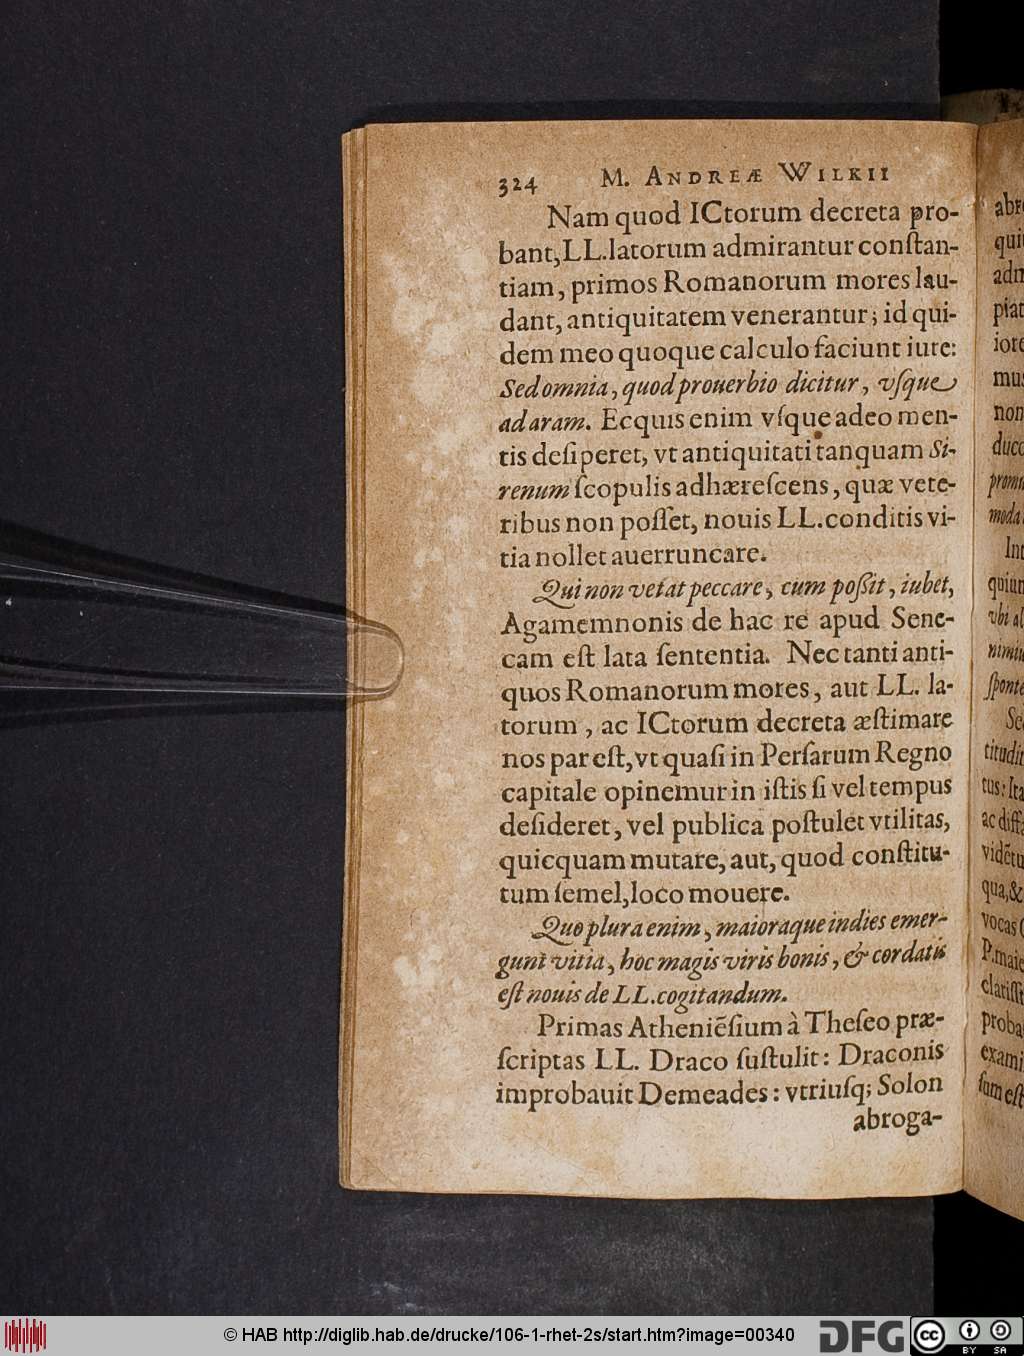 324 M. ANDREÆ WILKII
Nam quod ICtorum decreta pro-
bant, LL.latorum admirantur conſtan-
tiam, primos Romanorum mores lau-
dant, antiquitatem venerantur; id qui-
dem meo quoque calculo faciunt iure:
Sed omnia, quod prouerbio dicitur, vſque
ad aram. Ecquis enim vſque adeo men-
tis deſiperet, vt antiquitati tanquam Si-
renum ſcopulis adhæreſcens, quæ vete-
ribus non poſſet, nouis LL. conditis vi-
tia nollet auerruncare.
Qui non vetat peccare, cum poßit, iubet,
Agamemnonis de hac re apud Sene-
cam eſt lata ſententia. Nec tanti anti-
quos Romanorum mores, aut LL. la-
torum, ac ICtorum decreta æſtimare
nos par eſt, vt quaſi in Perſarum Regno
capitale opinemur in iſtis ſi vel tempus
deſideret, vel publica poſtulet vtilitas,
quicquam mutare, aut, quod conſtitu-
tum ſemel, loco mouere.
Quo plura enim, maioraque indies emer-
gunt vitia, hoc magis viris bonis, & cordatis
eſt nouis de LL. cogitandum.
Primas Atheniẽſium à Theſeo præ-
ſcriptas LL. Draco ſuſtulit: Draconis
improbauit Demeades: vtriuſq; Solon
abroga-
abro
qui
adm
piat
iore
mus
non
duco
promi
moda
Int
quiun
vbi al
nimiu
ſponte
Sed
titudit
tus: Ita
ac diffi
vidẽtu
qua, &
vocas
P. maie
clariſſi
proba
exami
ſum eſt
© HAB http://diglib.hab.de/drucke/106-1-rhet-2s/start.htm?image=00340
DFG
cc
BY SA